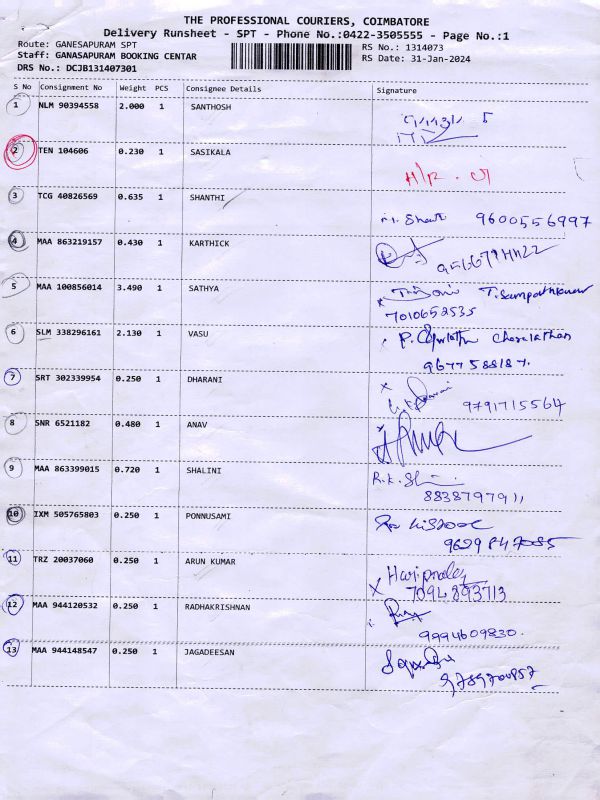 THE PROFESSIONAL COURIERS, COIMBATORE
Delivery Runsheet - SPT - Phone No.:0422-3505555 - Page No.:1
Route: GANESAPURAM SPT
Staff: GANASAPURAM BOOKING CENTAR
DRS No.: DCJB131407301
RS No.: 1314073
RS Date: 31-Jan-2024
S No Consignment No Weight PCS Consignee Details Signature
1 NLM 90394558 2.000 1 SANTHOSH
2 TEN 104606 0.230 1 SASIKALA
3 TCG 40826569 0.635 1 SHANTHI
9600556997
4 MAA 863219157 0.430 1 KARTHICK
5 MAA 100856014 3.490 1 SATHYA
T. Sampathkumar
7010652535
6 SLM 338296161 2.130 1 VASU
9677588187.
7 SRT 302339954 0.250 1 DHARANI
9791715564
8 SNR 6521182 0.480 1 ANAV
9 MAA 863399015 0.720 1 SHALINI
R.K. Shalini
10 IXM 505765803 0.250 1 PONNUSAMI
9629847085
11 TRZ 20037060 0.250 1 ARUN KUMAR
7094893713
12 MAA 944120532 0.250 1 RADHAKRISHNAN
9994609830.
13 MAA 944148547 0.250 1 JAGADEESAN
9789700857